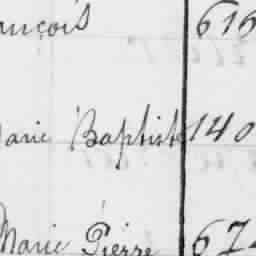 ançois 616
arie Baptiste 140
Marie Pierre 67